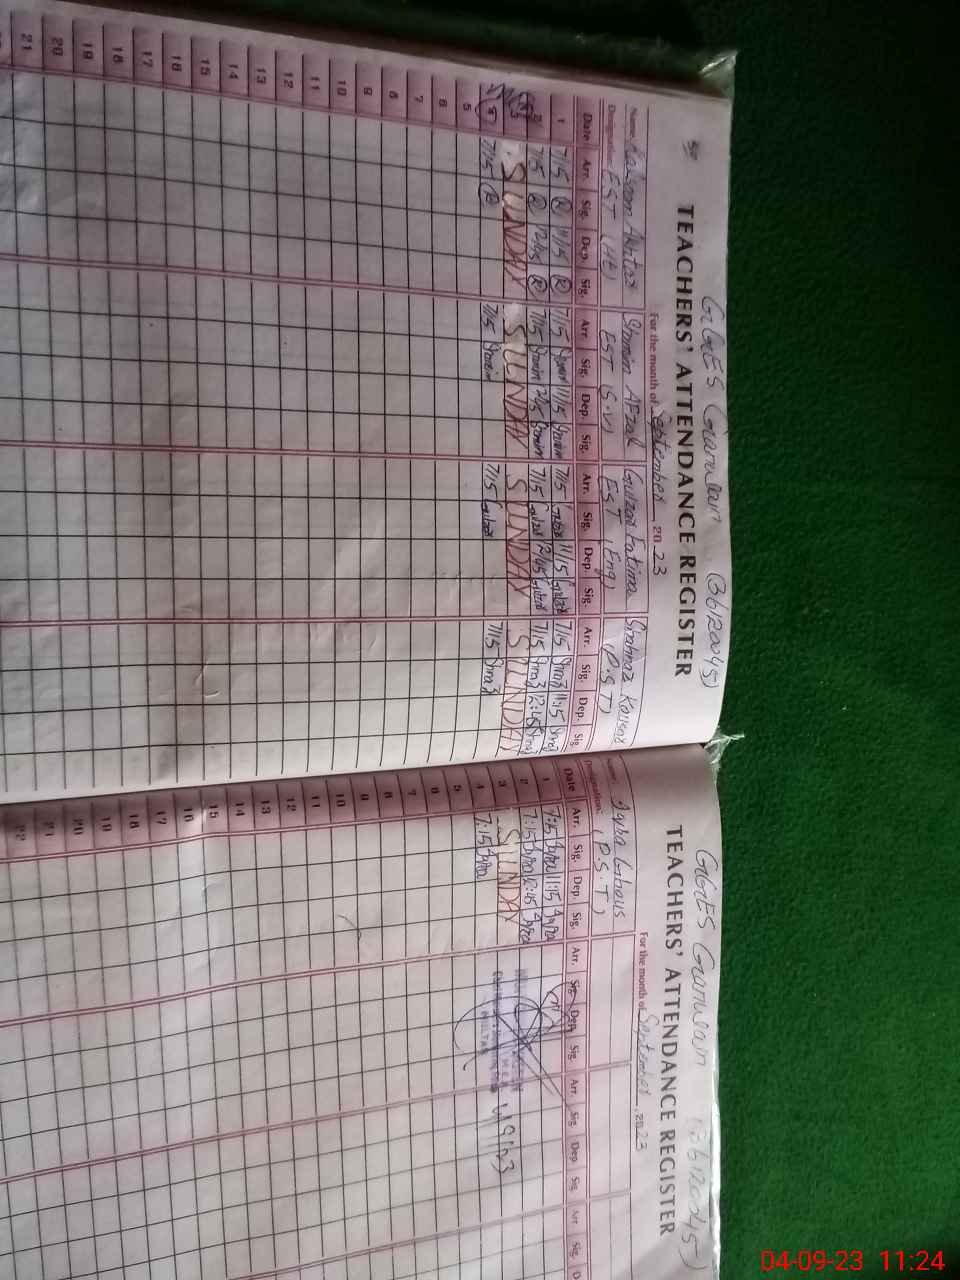 GGES Garulain (36120045)
50 TEACHERS' ATTENDANCE REGISTER
For the month of September 2023
Name: Akhtar Shamim Afzal Gulzar Fatima Shahnaz Kausar
Designation: EST EST EST (Eng) (P.S.T)
Date Arr. Sig. Dep. Sig. Arr. Sig. Dep. Sig. Arr. Sig. Dep. Sig. Arr. Sig. Dep. Sig.
1 7/15 (R) 11/15 (R) 7/15 Shamim 11/15 Shamim 7/15 Gulzar 11/15 Gulzar 7/15 Shnaz 11:15 Shnaz
2 7/15 (R) 12/45 (R) 7/15 Shamim 12/45 Shamim 7/15 Gulzar 12/45 Gulzar 7/15 Shnaz 12:45 Shnaz
SUNDAY SUNDAY SUNDAY SUNDAY
7/15 (R) 7/15 Shamim 7/15 Gulzar 7/15 Shnaz
5
6
7
8
9
10
11
12
13
14
15
16
17
18
19
20
21
GGES Garulain (36120045)
TEACHERS' ATTENDANCE REGISTER
For the month of September, 2023
Name: Ghous
Designation: (P.S.T)
Date Arr. Sig. Dep. Sig. Arr. Sig. Dep. Sig. Arr. Sig. Dep Sig. Arr. Sig.
1 7:15 11:15
2 7:15 12:45
3 SUNDAY
4 7:15
4/9/23
MULTAN
5
6
7
8
9
10
11
12
13
14
15
16
17
18
19
20
21
22
04-09-23 11:24